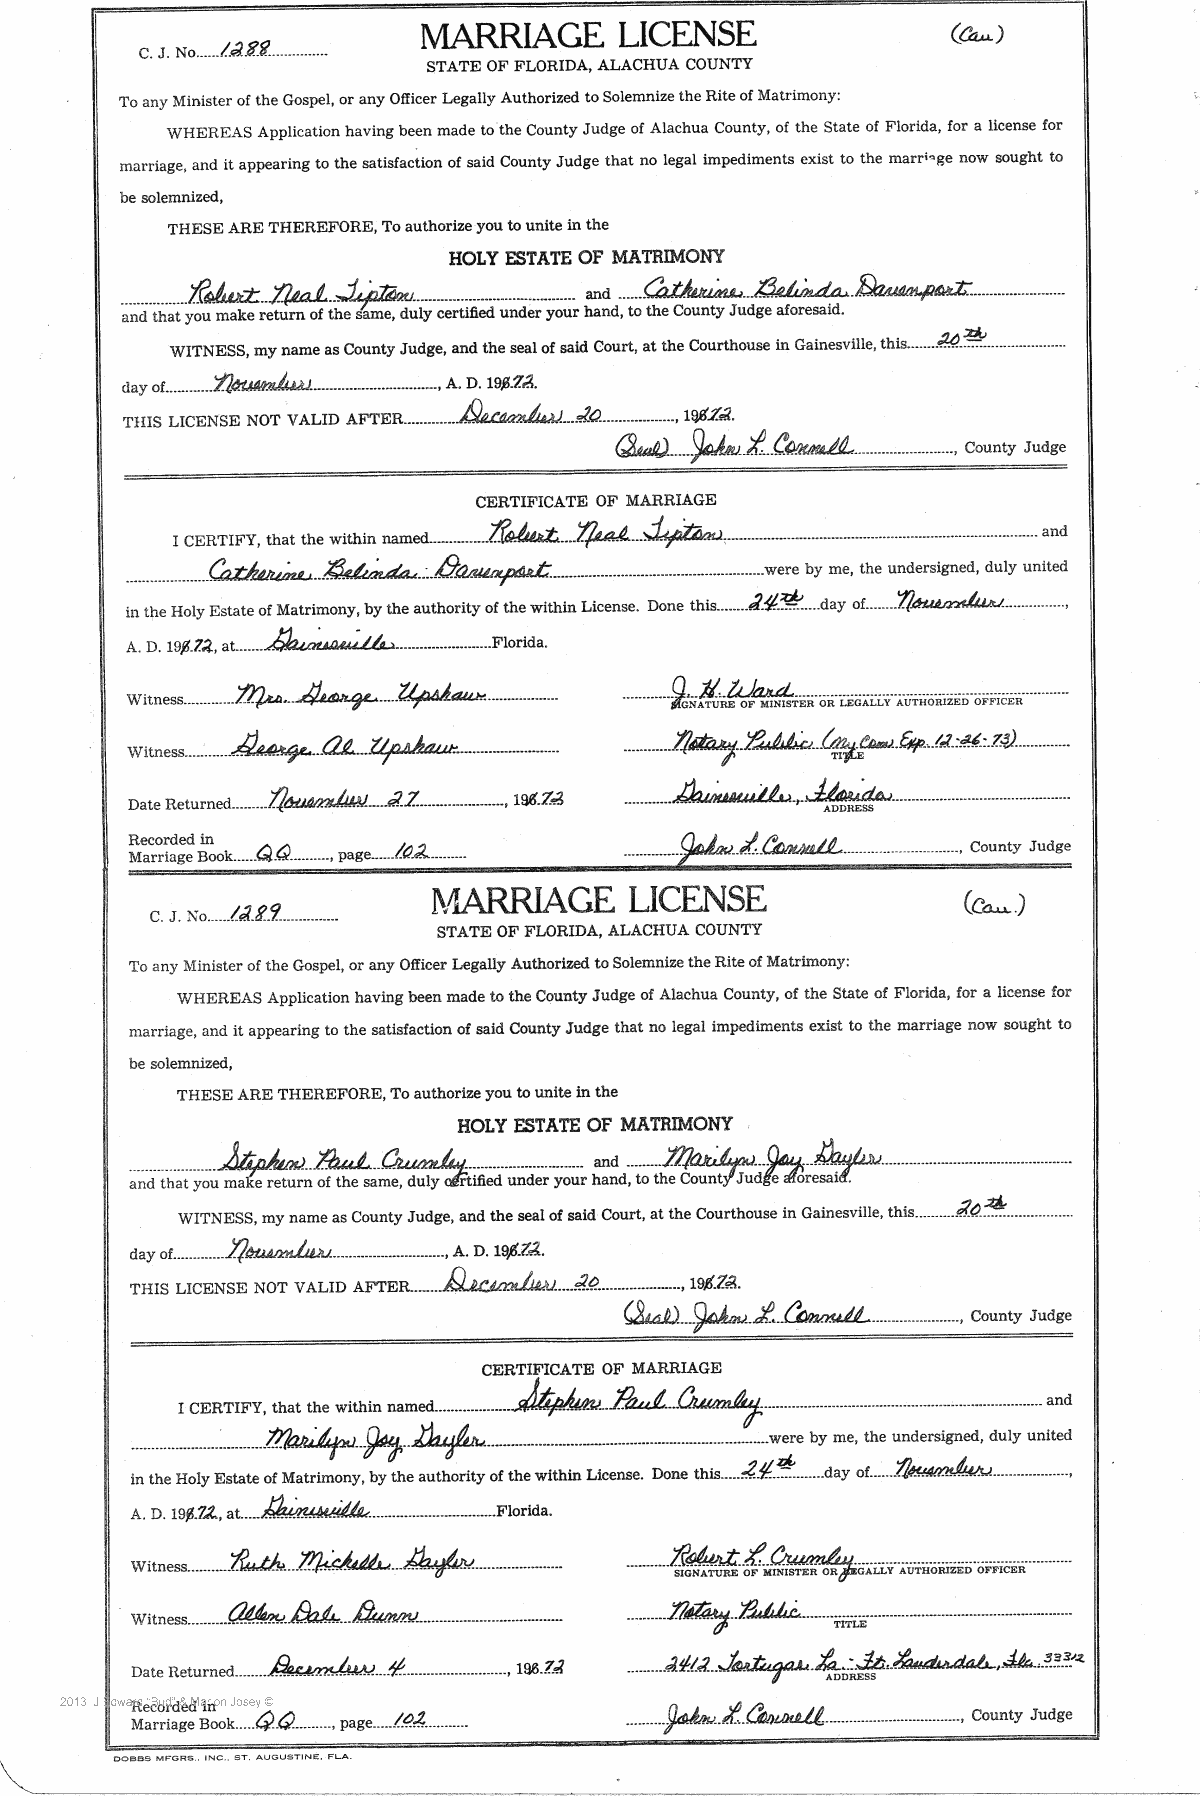 C. J. No. 1288 MARRIAGE LICENSE (Cau)
STATE OF FLORIDA, ALACHUA COUNTY
To any Minister of the Gospel, or any Officer Legally Authorized to Solemnize the Rite of Matrimony:
WHEREAS Application having been made to the County Judge of Alachua County, of the State of Florida, for a license for
marriage, and it appearing to the satisfaction of said County Judge that no legal impediments exist to the marriage now sought to
be solemnized,
THESE ARE THEREFORE, To authorize you to unite in the
HOLY ESTATE OF MATRIMONY
Robert Neal Tipton and Catherine Belinda Davenport
and that you make return of the same, duly certified under your hand, to the County Judge aforesaid.
WITNESS, my name as County Judge, and the seal of said Court, at the Courthouse in Gainesville, this 20th
day of November, A. D. 1972.
THIS LICENSE NOT VALID AFTER December 20, 1972.
(Seal) John L. Connell, County Judge
CERTIFICATE OF MARRIAGE
I CERTIFY, that the within named Robert Neal Tipton and
Catherine Belinda Davenport were by me, the undersigned, duly united
in the Holy Estate of Matrimony, by the authority of the within License. Done this 24th day of November,
A. D. 1972, at Gainesville Florida.
Witness Mrs. George Upshaw J. H. Ward
SIGNATURE OF MINISTER OR LEGALLY AUTHORIZED OFFICER
Witness George Al Upshaw Notary Public (My Com Exp. 12-26-73)
TITLE
Date Returned November 27, 1972 Gainesville, Florida
ADDRESS
Recorded in
Marriage Book QQ, page 102 John L. Connell, County Judge
C. J. No. 1289 MARRIAGE LICENSE (Cau.)
STATE OF FLORIDA, ALACHUA COUNTY
To any Minister of the Gospel, or any Officer Legally Authorized to Solemnize the Rite of Matrimony:
WHEREAS Application having been made to the County Judge of Alachua County, of the State of Florida, for a license for
marriage, and it appearing to the satisfaction of said County Judge that no legal impediments exist to the marriage now sought to
be solemnized,
THESE ARE THEREFORE, To authorize you to unite in the
HOLY ESTATE OF MATRIMONY
Stephen Paul Crumley and Marilyn Joy Gayler
and that you make return of the same, duly certified under your hand, to the County Judge aforesaid.
WITNESS, my name as County Judge, and the seal of said Court, at the Courthouse in Gainesville, this 20th
day of November, A. D. 1972.
THIS LICENSE NOT VALID AFTER December 20, 1972.
(Seal) John L. Connell, County Judge
CERTIFICATE OF MARRIAGE
I CERTIFY, that the within named Stephen Paul Crumley and
Marilyn Joy Gayler were by me, the undersigned, duly united
in the Holy Estate of Matrimony, by the authority of the within License. Done this 24th day of November,
A. D. 1972, at Gainesville Florida.
Witness Ruth Michelle Gayler Robert L. Crumley
SIGNATURE OF MINISTER OR LEGALLY AUTHORIZED OFFICER
Witness Allen Dale Dunn Notary Public
TITLE
Date Returned December 4, 1972 2412 Tortugas La. - Ft. Lauderdale, Fla 33312
ADDRESS
2013 J Edward "Bud" & Mason Josey ©
Recorded in
Marriage Book QQ, page 102 John L. Connell, County Judge
DOBBS MFGRS., INC., ST. AUGUSTINE, FLA.